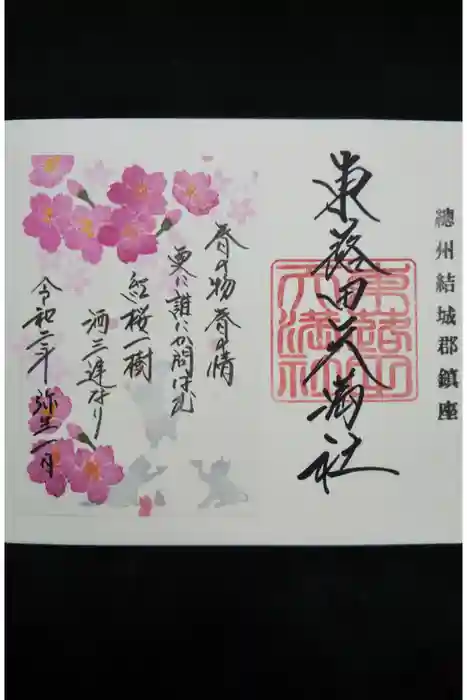 總州結城郡鎮座
東蕗田天満社
東蕗田天満社
春の物春の情
更に誰にか問はむ
紅桜一樹
酒三遅なり
令和二年 弥生一日